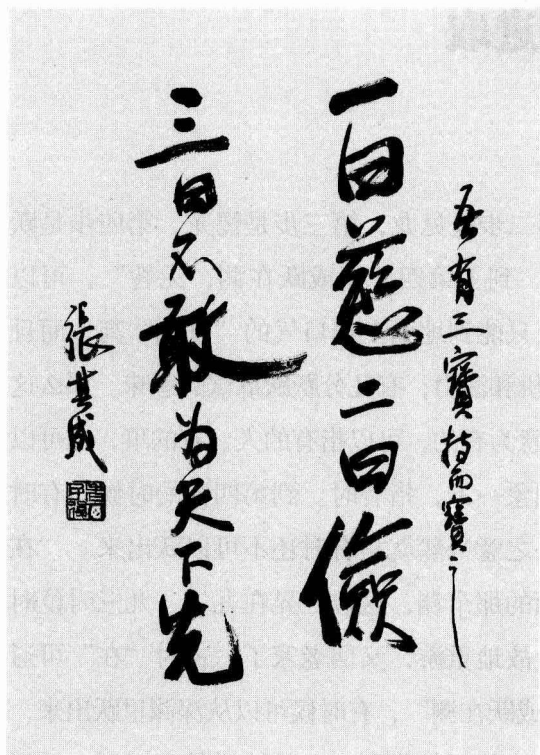 吾有三寶持而寶之
一曰慈二曰儉
三曰不敢为天下先
張其成